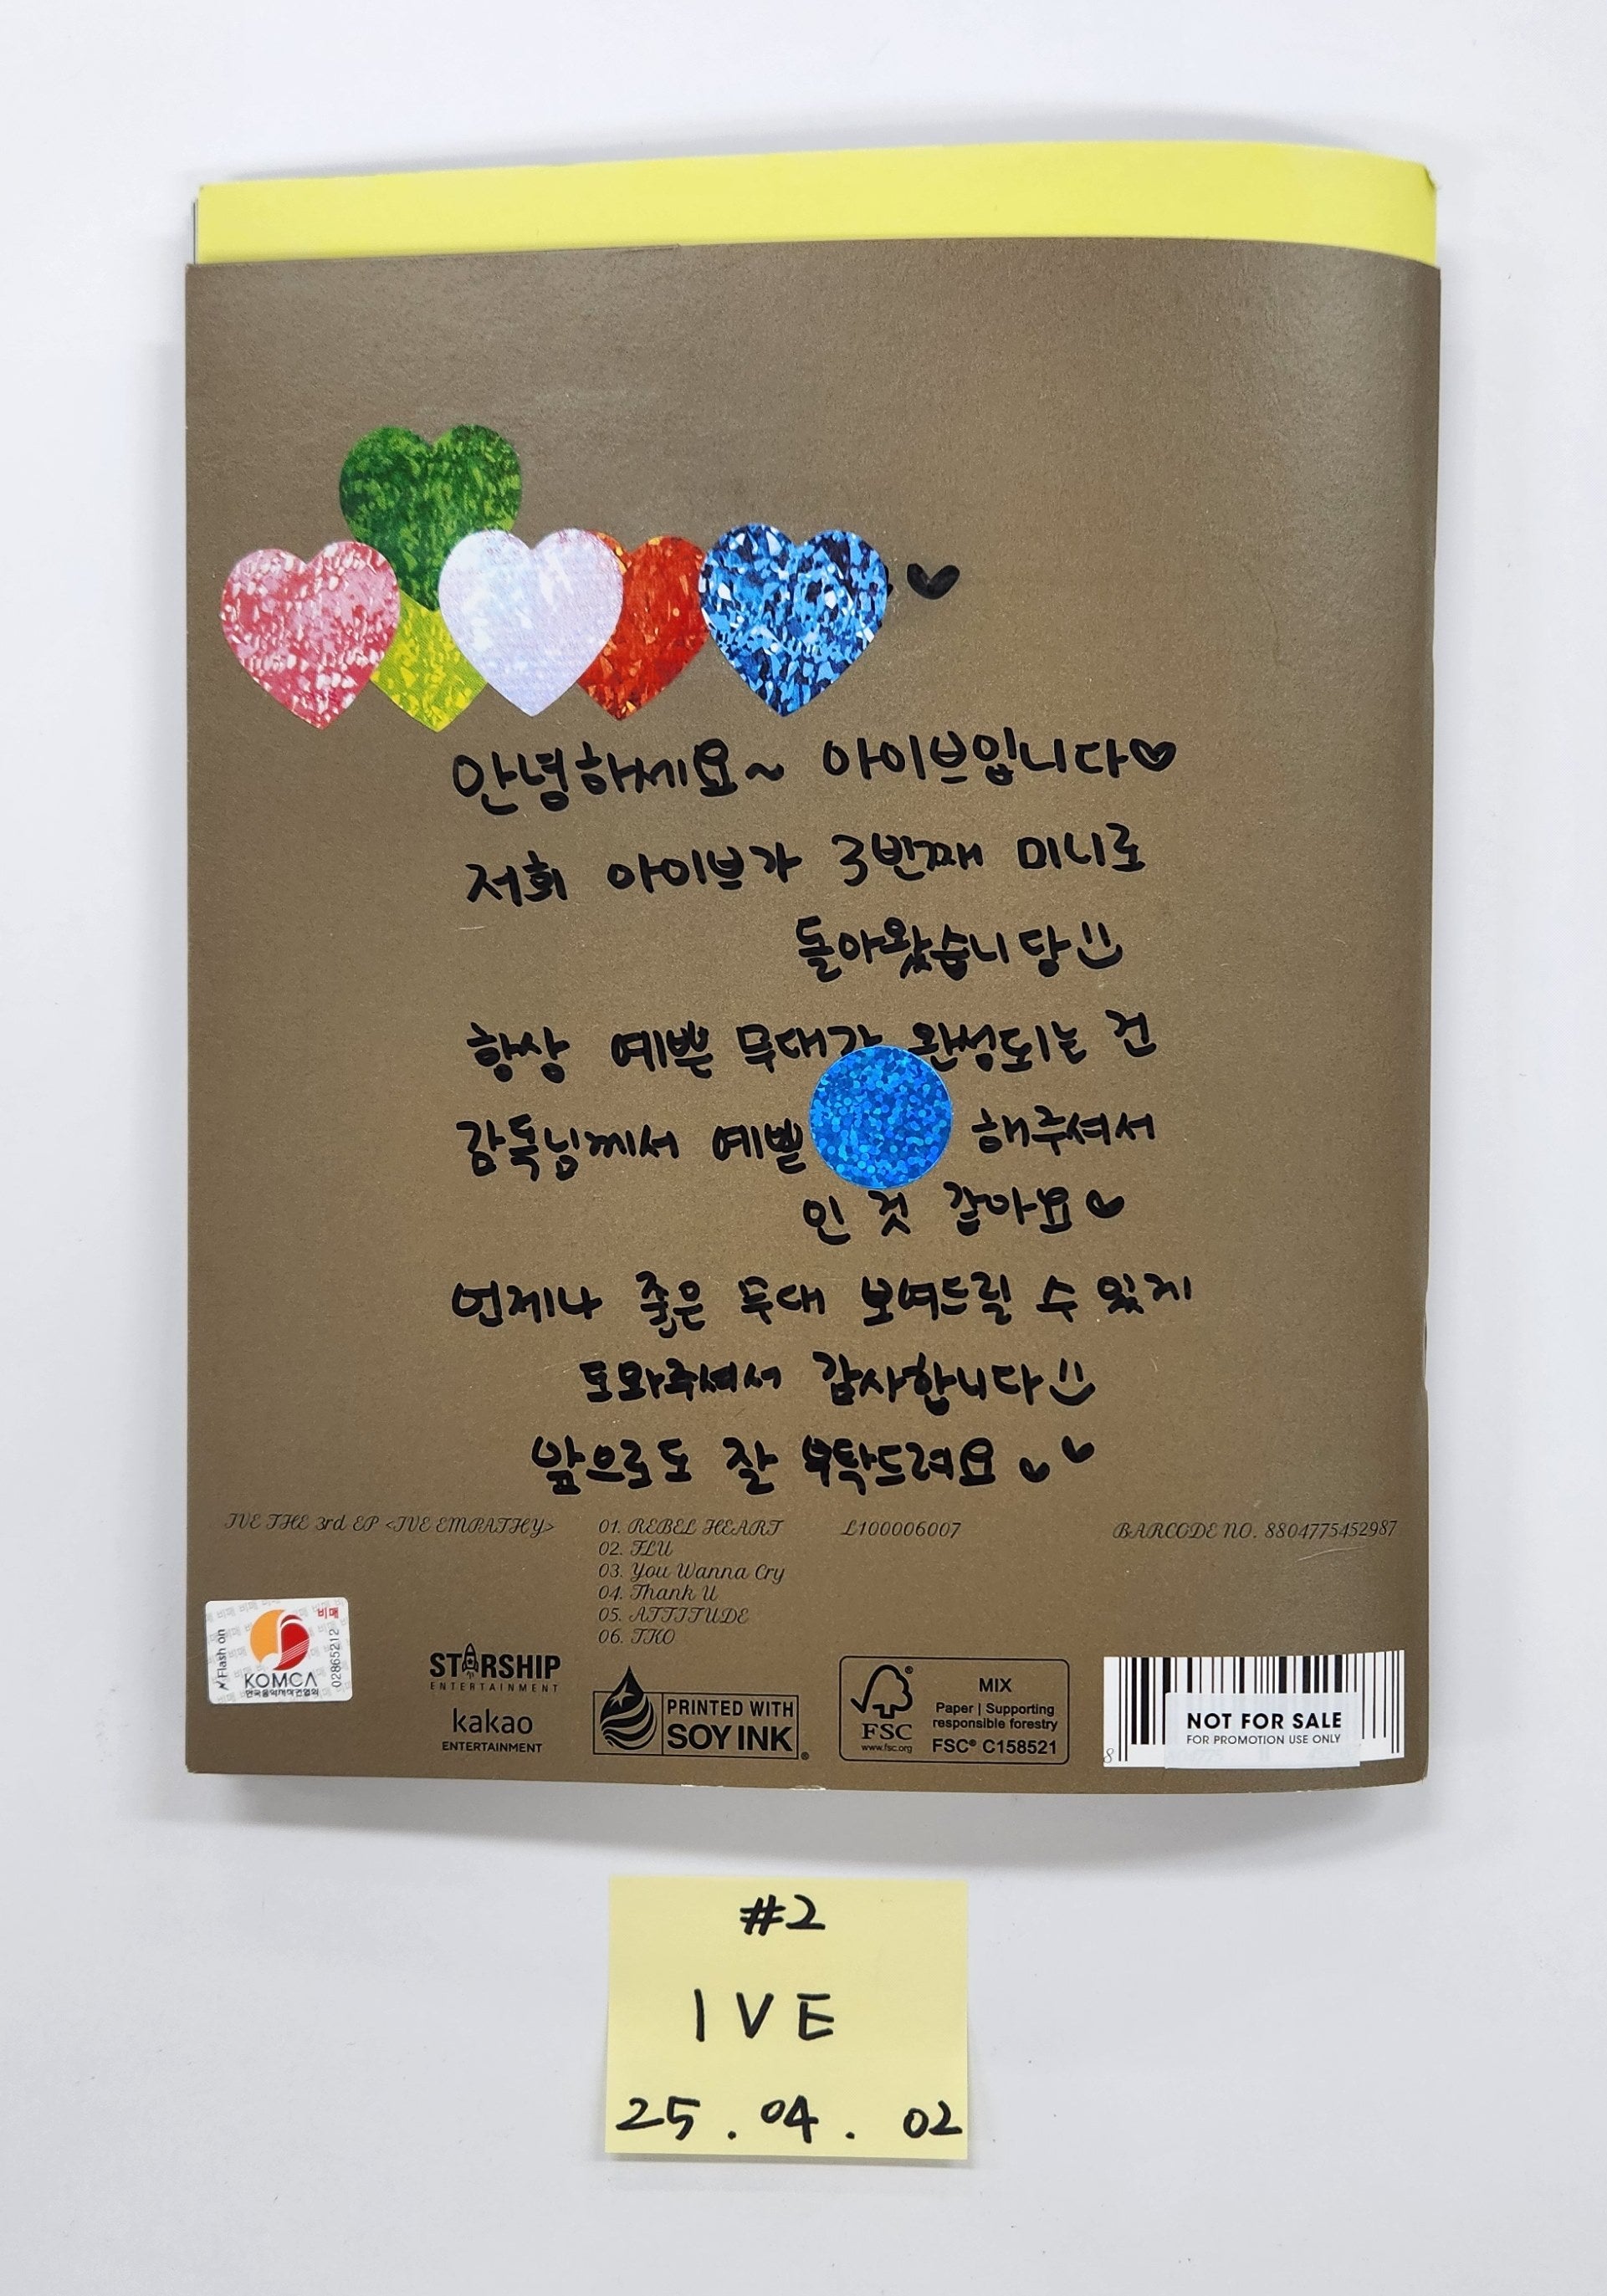 안녕하세요~ 아이브입니다♡
저희 아이브가 3번째 미니로
돌아왔습니당
항상 예쁜 무대가 완성되는 건
감독님께서 예쁘 해주셔서
인 것 같아요
언제나 좋은 무대 보여드릴 수 있게
도와주셔서 감사합니다
앞으로도 잘 부탁드려요
IVE THE 3rd EP <IVE EMPATHY>
01. REBEL HEART
02. FLU
03. You Wanna Cry
04. Thank U
05. ATTITUDE
06. TKO
L100006007
BARCODE NO. 8804775452987
Flash on
비매
KOMCA
한국음악저작권협회
02865212
STARSHIP
ENTERTAINMENT
kakao
ENTERTAINMENT
PRINTED WITH
SOY INK
FSC
www.fsc.org
MIX
Paper | Supporting
responsible forestry
FSC® C158521
NOT FOR SALE
FOR PROMOTION USE ONLY
8
#2
IVE
25.04.02